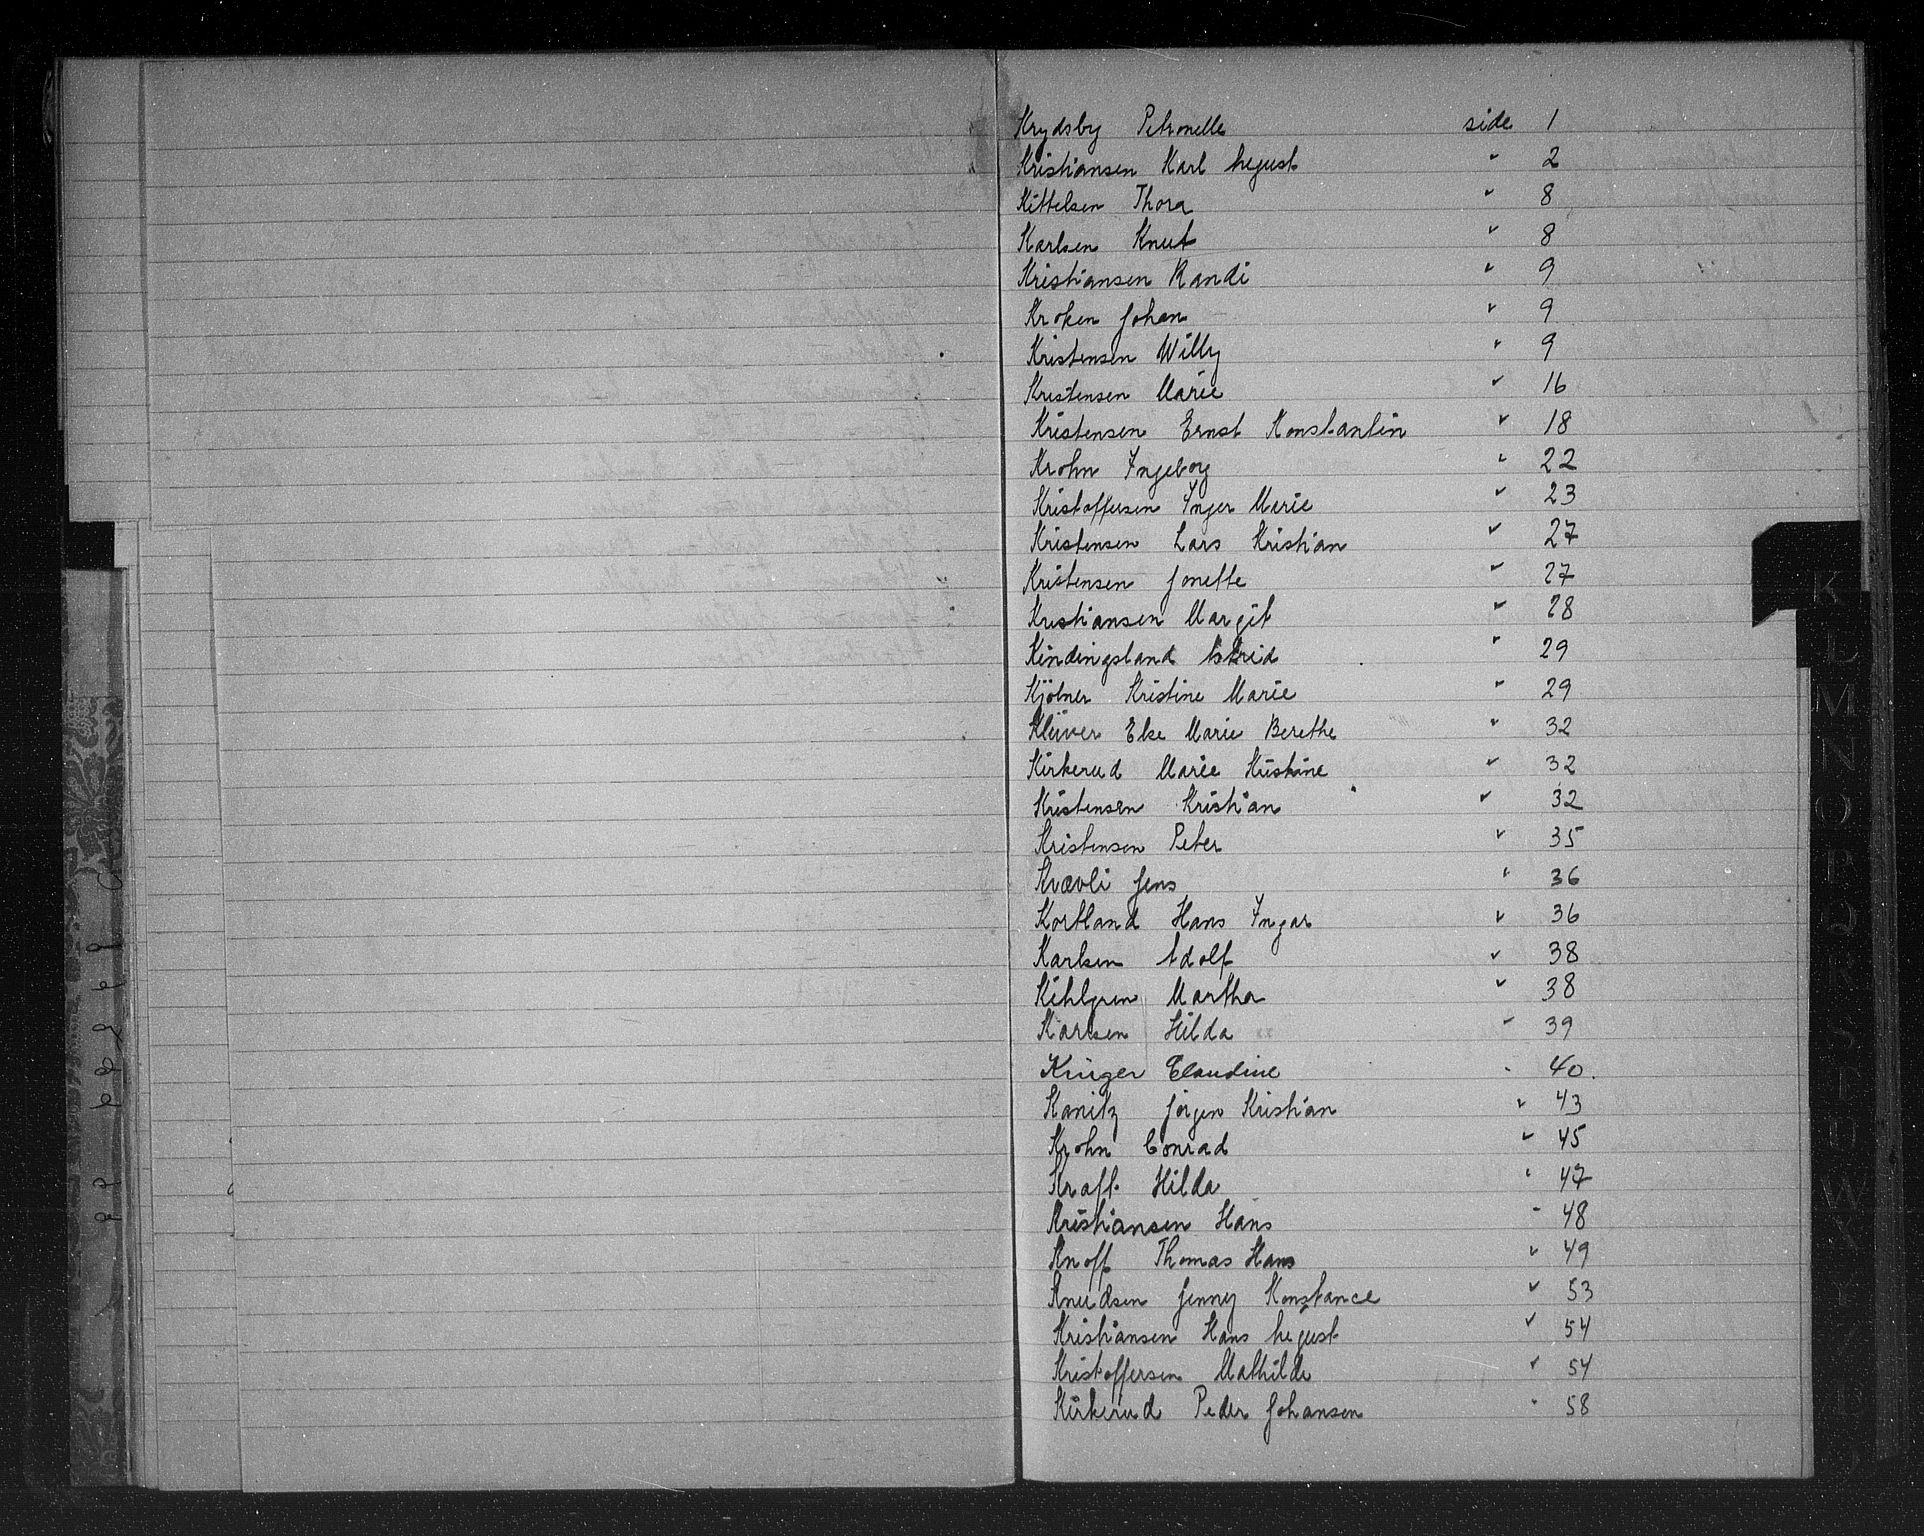 Krydsby Petronelle side 1
Kristiansen Karl August " 2
Kittelsen Thora " 8
Karlsen Knut " 8
Kristiansen Randi " 9
Kroken Johan " 9
Kristensen Willy " 9
Kristensen Marie " 16
Kristensen Ernst Konstantin " 18
Krohn Ingeborg " 22
Kristoffersen Inger Marie " 23
Kristensen Lars Kristian " 27
Kristensen Jonette " 27
Kristiansen Margit " 28
Kindingsland Astrid " 29
Kjölner Kristine Marie " 29
Klüwer Else Marie Berethe " 32
Kirkerud Marie Kristine " 32
Kristensen Kristian " 32
Kristensen Peter " 35
Kvævli Jens " 36
Kortland Hans Ingar " 36
Karlsen Adolf " 38
Kihlgren Martha " 38
Karlsen Hilda " 39
Krüger Claudine " 40.
Kanitz Jörgen Kristian " 43
Krohn Conrad " 45
Kraft Hilda " 47
Kristiansen Hans " 48
Knoff Thomas Hans " 49
Knudsen Jenny Konstance " 53
Kristiansen Hans August " 54
Kristoffersen Mathilde " 54
Kirkerud Peder Johansen " 58
K
L
M
N
O
P
Q
R
S
T
U
W
Y